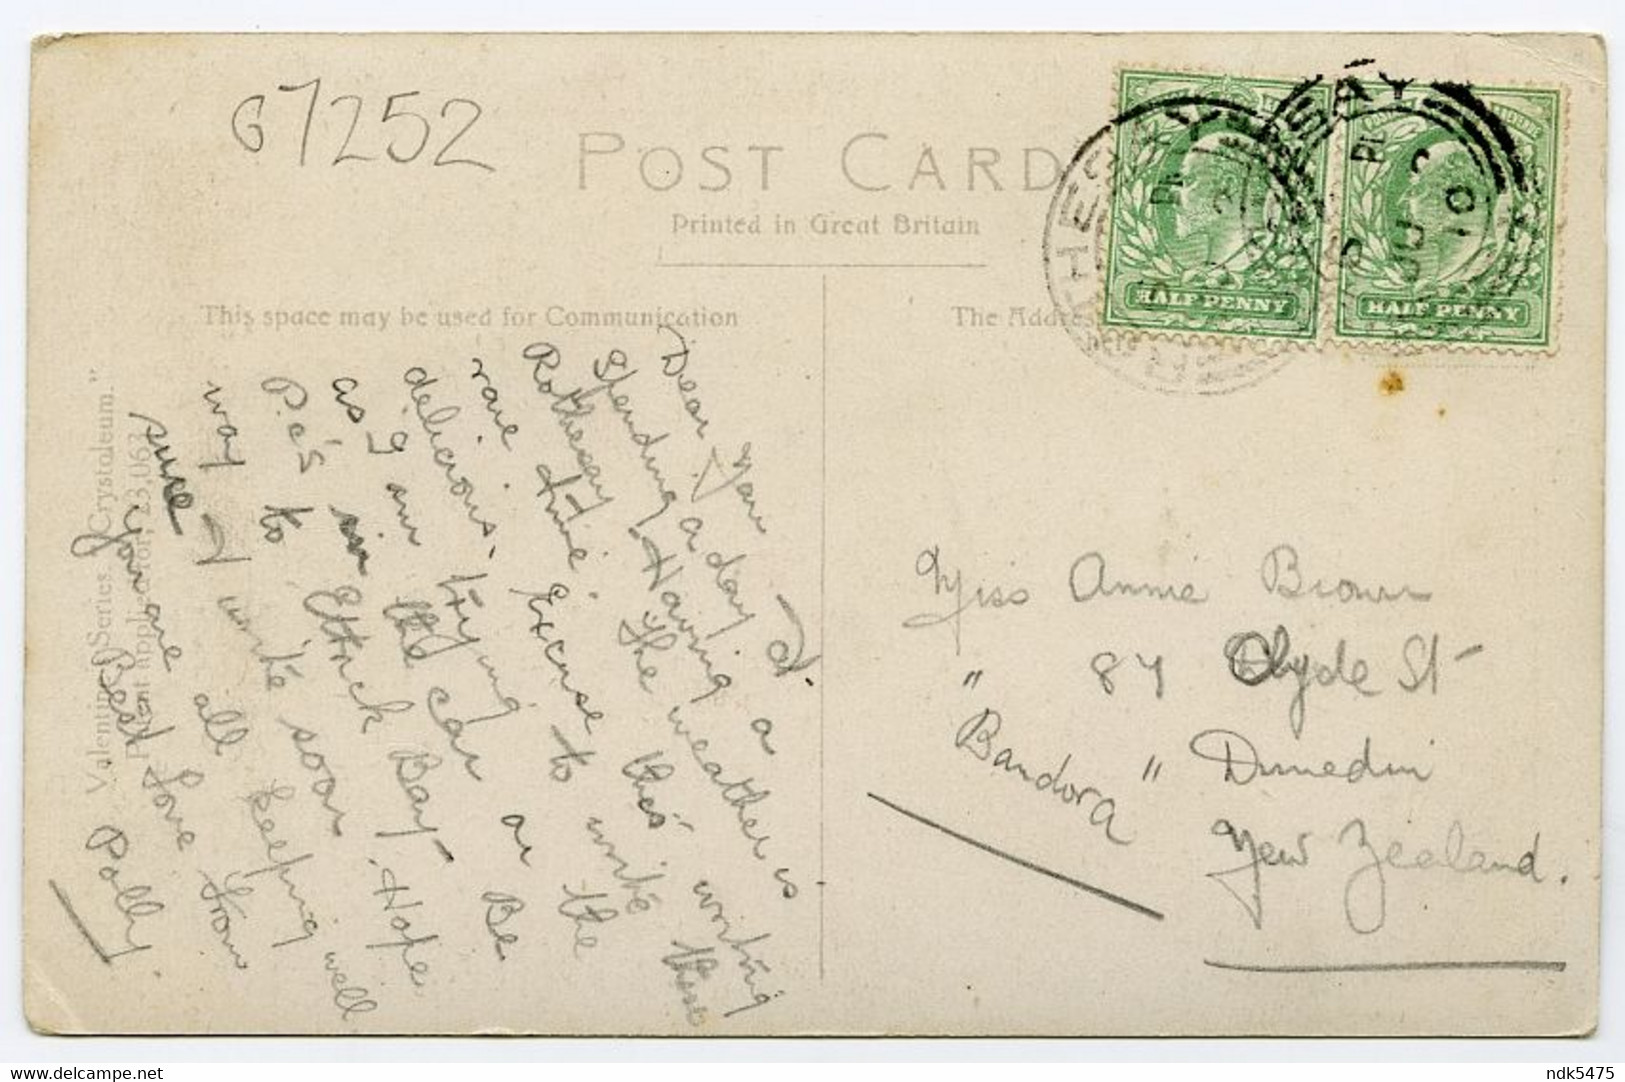 67252
POST CARD
Printed in Great Britain
This space may be used for Communication
The Address
HALF PENNY
HALF PENNY
Valentine's Series "Crystoleum."
Dear
Spending a day at
Rothesay. Having a
rare time. The weather is
delicious. Excuse this writing
as I am trying to write these
P.C's in the car or the
way to Ettrick Bay. Be
sure & write soon. Hope
you are all keeping well
Best Love from
Polly.
Miss Annie Brown
87 Clyde St
" Bandora " Dunedin
New Zealand.
delcampe.net
ndk5475